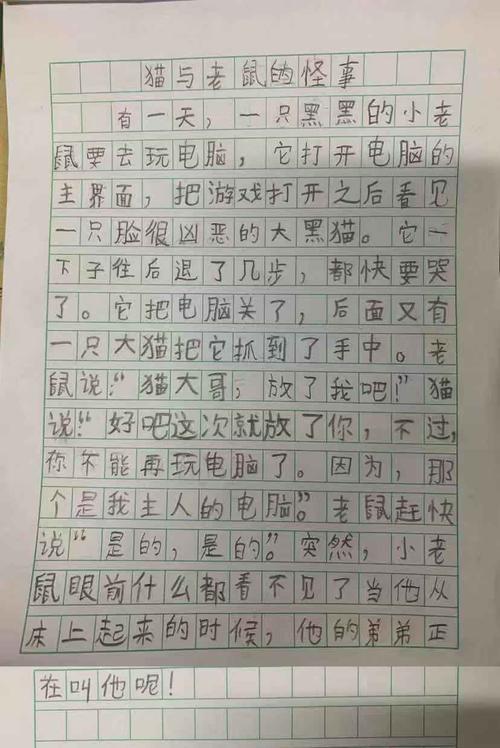 猫与老鼠的怪事
有一天，一只黑黑的小老
鼠要去玩电脑，它打开电脑的
主界面，把游戏打开之后看见
一只脸很凶恶的大黑猫。它一
下子往后退了几步，都快要哭
了。它把电脑关了，后面又有
一只大猫把它抓到了手中。老
鼠说：“猫大哥，放了我吧！”猫
说：“好吧这次就放了你，不过，
你不能再玩电脑了。因为，那
个是我主人的电脑。”老鼠赶快
说“是的，是的”。突然，小老
鼠眼前什么都看不见了当他从
床上起来的时候，他的弟弟正
在叫他呢！